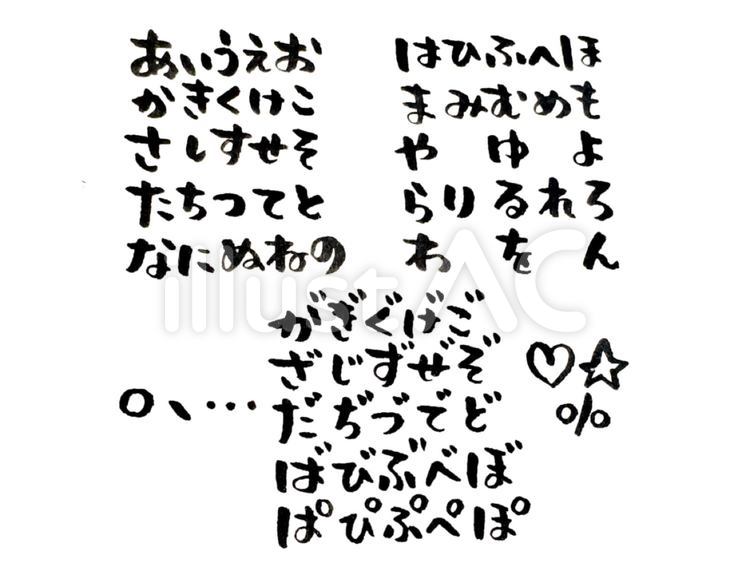 あいうえお
かきくけこ
さしすせそ
たちつてと
なにぬねの
はひふへほ
まみむめも
や ゆ よ
らりるれろ
わ を ん
がぎぐげご
ざじずぜぞ
だぢづでど
ばびぶべぼ
ぱぴぷぺぽ
。、…
♡☆
%
illustAC